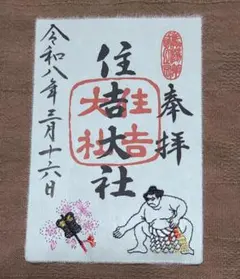 奉拝
住吉大社
住吉
大社
令和八年三月十六日